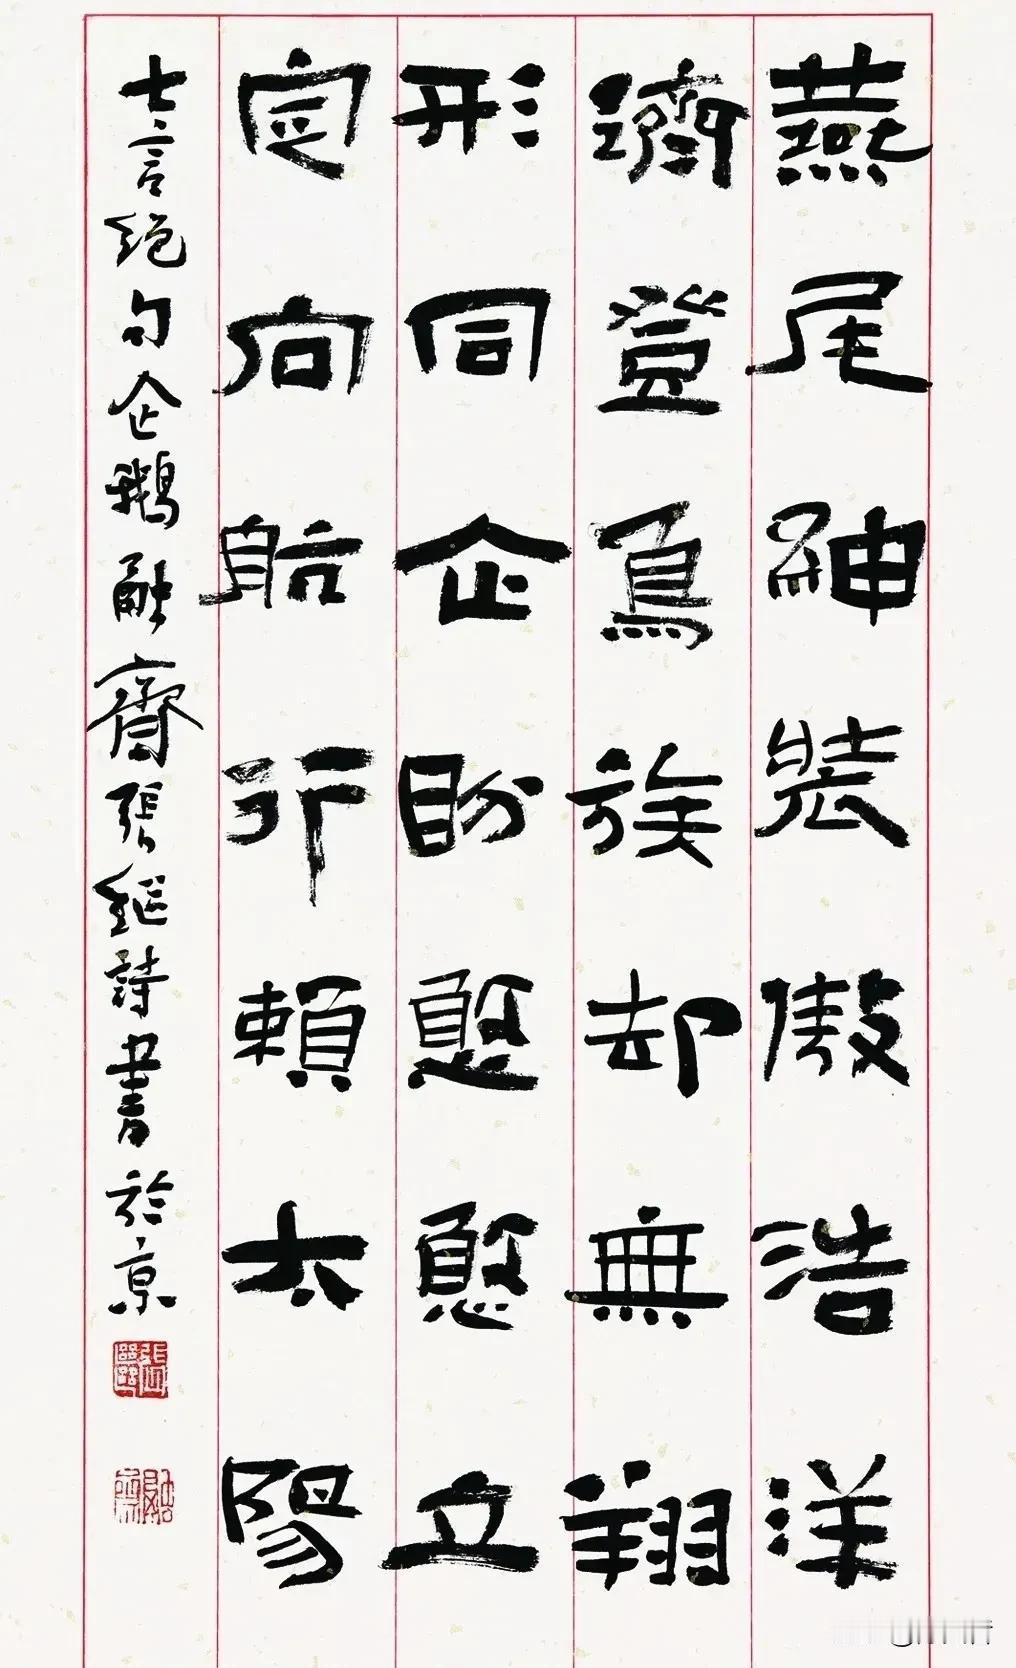 燕尾紳裝傲浩洋
躋登鳥族却無翔
形同企盼憨憨立
定向航行賴太陽
七言絕句企鵝融齋張繼詩書於京
融齋